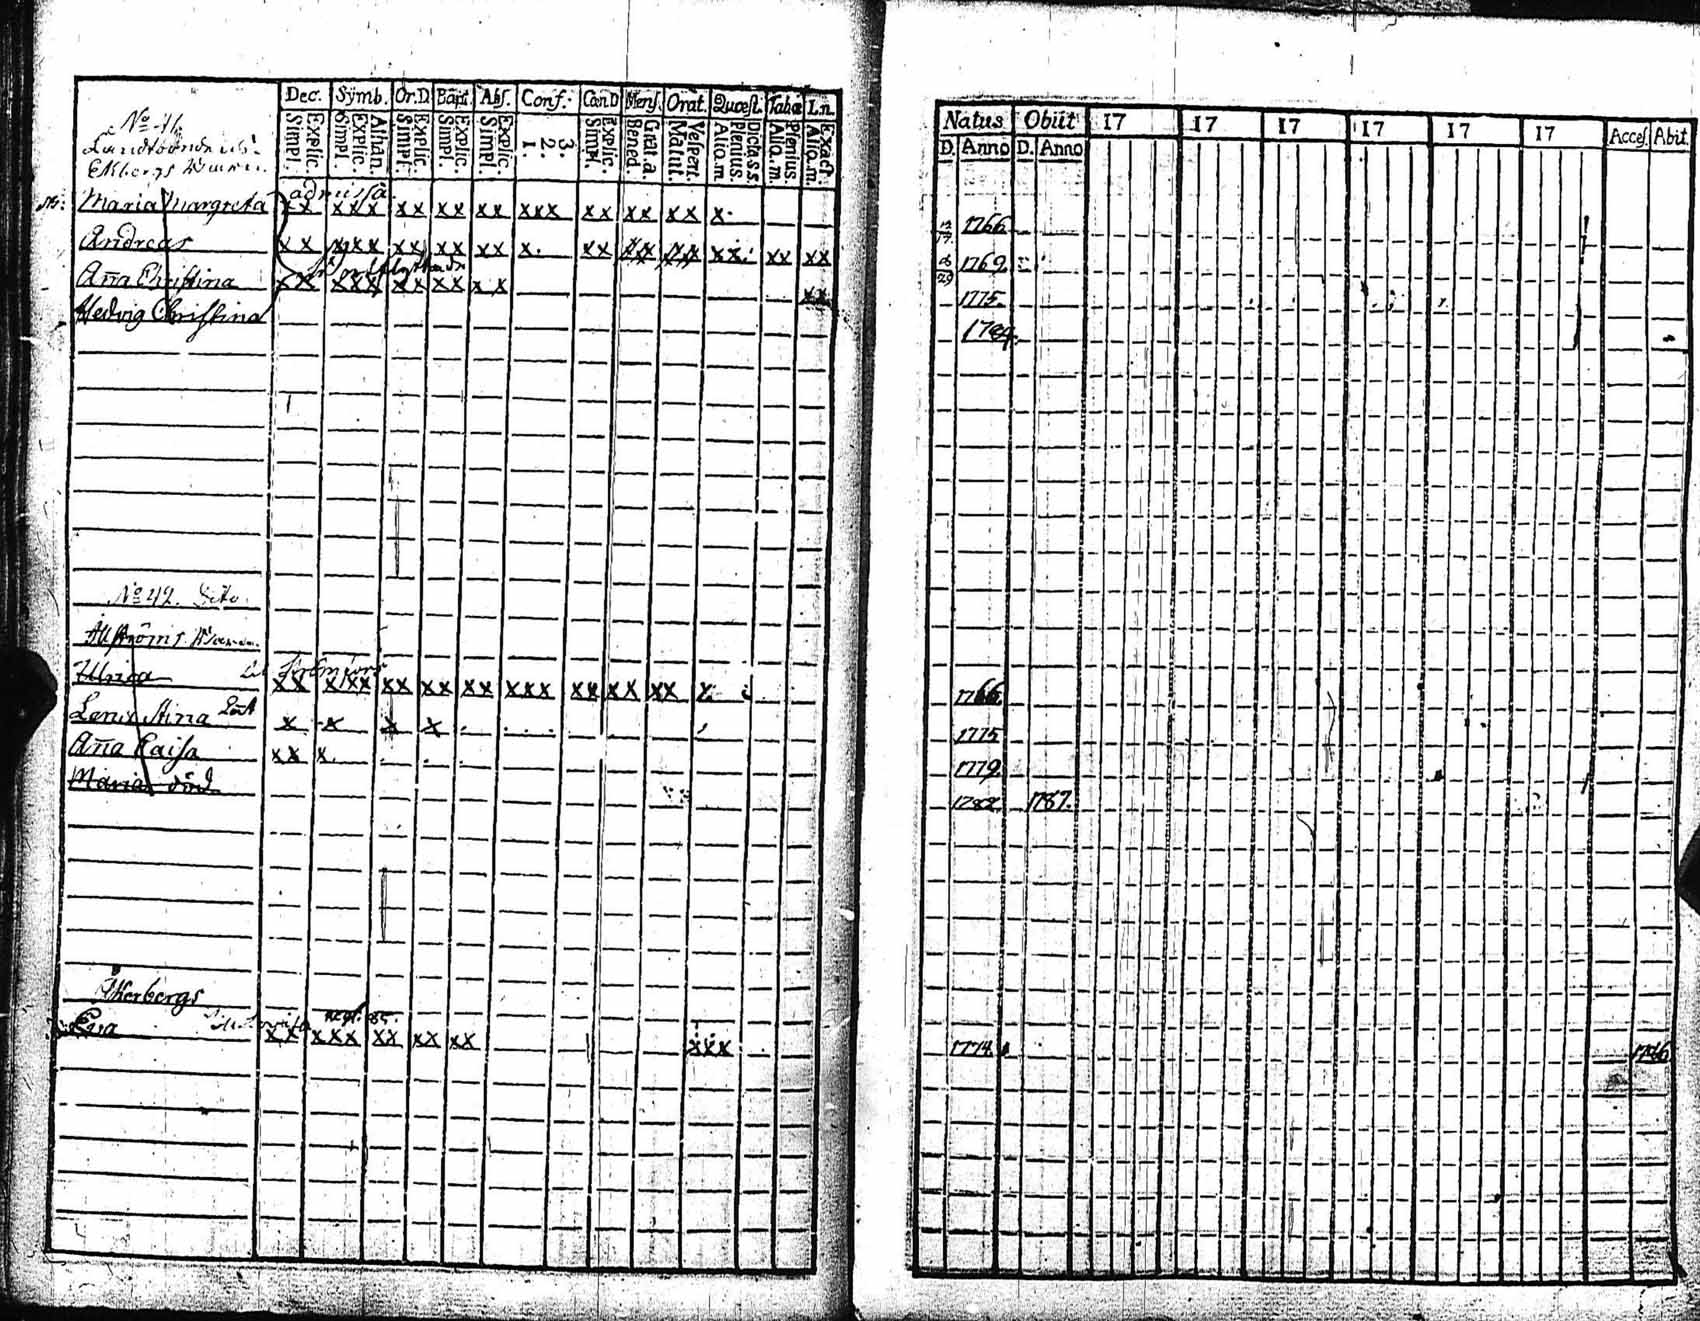 Dec. Symb. Or.D. Bapt. Abs. Conf. Cœn.D Mens. Orat. Quæst. Tabæ I.n.
Simpl. Explic. Simpl. Explic. Athan. Simpl. Explic. Simpl. Explic. Simpl. Explic. 1. 2. 3. Simpl. Explic. Bened. Grat. a. Matut. Vespert. Alio. m. Plenius. Dicta. s.s. Alio. m. Plenius. Alio. m. Exact.
Ekbergs
admissa
Maria Margreta xx xxx xx xx xx xxx xx xx xx x.
Andreas xx xxx xx xx xx x. xx xx xx xx xx xx
Aña Christina xx xxx xx xx xx xx
Hedvig Christina
No 42.
Ulrica xx xxx xx xx xx xxx xx xx xx x.
Lena Stina x x x x
Aña Caisa xx x
Maria död
Åkerbergs
Eva xx xxx xx xx xx xxx
Natus Obiit 17 17 17 17 17 17 Acces. Abit.
D. Anno D. Anno
12/17 1766.
6/29 1769.
1775.
1766.
1775
1779.
1787.
1774. 1786